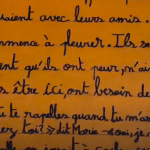 aient avec leurs amis.
mença à pleurer. Ils s
ent qu'ils ont peur, n'ai
s être ici, ont besoin de
te rapelles quand tu m'as
toi? » dit Marie - oui, je